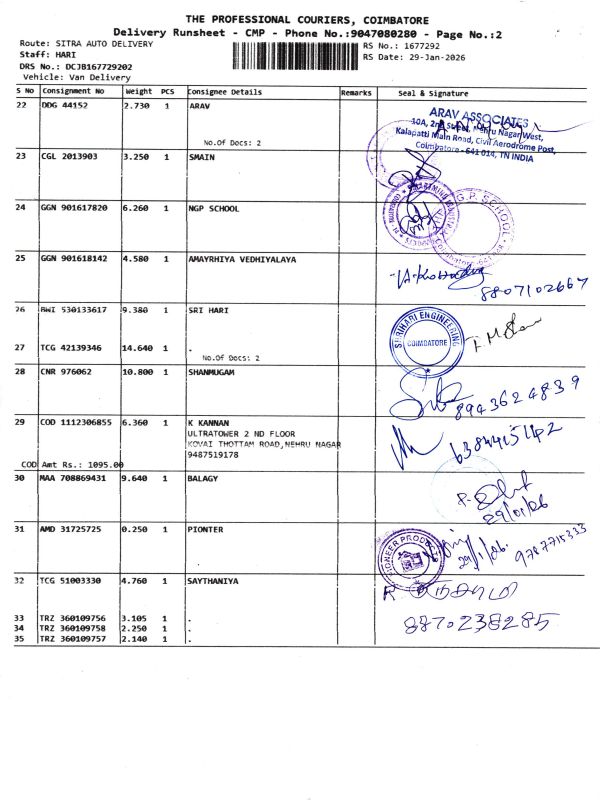 THE PROFESSIONAL COURIERS, COIMBATORE
Delivery Runsheet - CMP - Phone No.:9047080280 - Page No.:2
Route: SITRA AUTO DELIVERY
RS No.: 1677292
Staff: HARI
RS Date: 29-Jan-2026
DRS No.: DCJB167729202
Vehicle: Van Delivery
S No Consignment No Weight PCS Consignee Details Remarks Seal & Signature
22 DDG 44152 2.730 1 ARAV
No.Of Docs: 2
ARAV ASSOCIATES
10A, 2nd Street, Nehru Nagar West,
Kalapatti Main Road, Civil Aerodrome Post,
Coimbatore - 641 014, TN INDIA
23 CGL 2013903 3.250 1 SMAIN
24 GGN 901617820 6.260 1 NGP SCHOOL
G.P. SCHOOL
25 GGN 901618142 4.580 1 AMAYRHIYA VEDHIYALAYA
8807102667
26 BWI 530133617 9.380 1 SRI HARI
SHRIHARI ENGINEERING
COIMBATORE
27 TCG 42139346 14.640 1 .
No.Of Docs: 2
28 CNR 976062 10.800 1 SHANMUGAM
8943624839
29 COD 1112306855 6.360 1 K KANNAN
ULTRATOWER 2 ND FLOOR
KOVAI THOTTAM ROAD,NEHRU NAGAR
9487519178
6384415142
COD Amt Rs.: 1095.00
30 MAA 708869431 9.640 1 BALAGY
29/01/26
31 AMD 31725725 0.250 1 PIONTER
PIONEER PRODUCTS
29/1/26.
9787715333
32 TCG 51003330 4.760 1 SAYTHANIYA
8870238285
33 TRZ 360109756 3.105 1 .
34 TRZ 360109758 2.250 1 .
35 TRZ 360109757 2.140 1 .